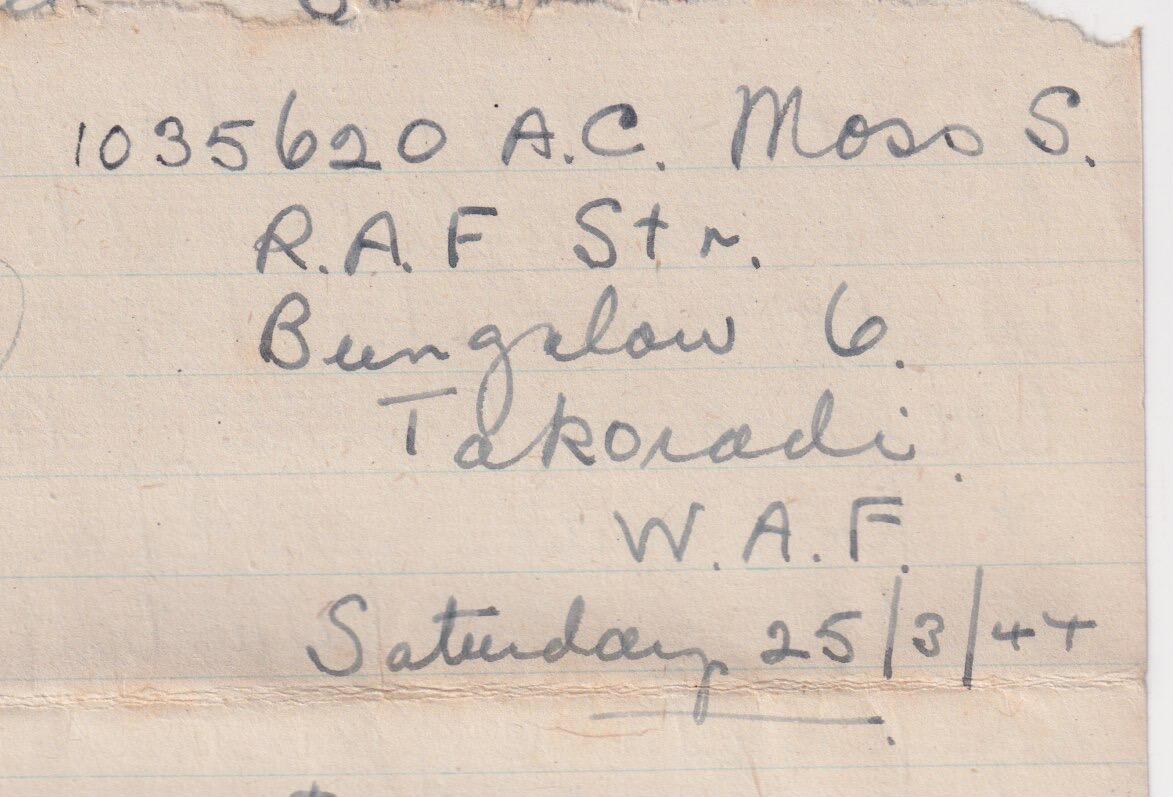 1035620 A.C. Moss S.
R.A.F Stn.
Bungalow 6.
Takoradi.
W.A.F.
Saturday 25/3/44